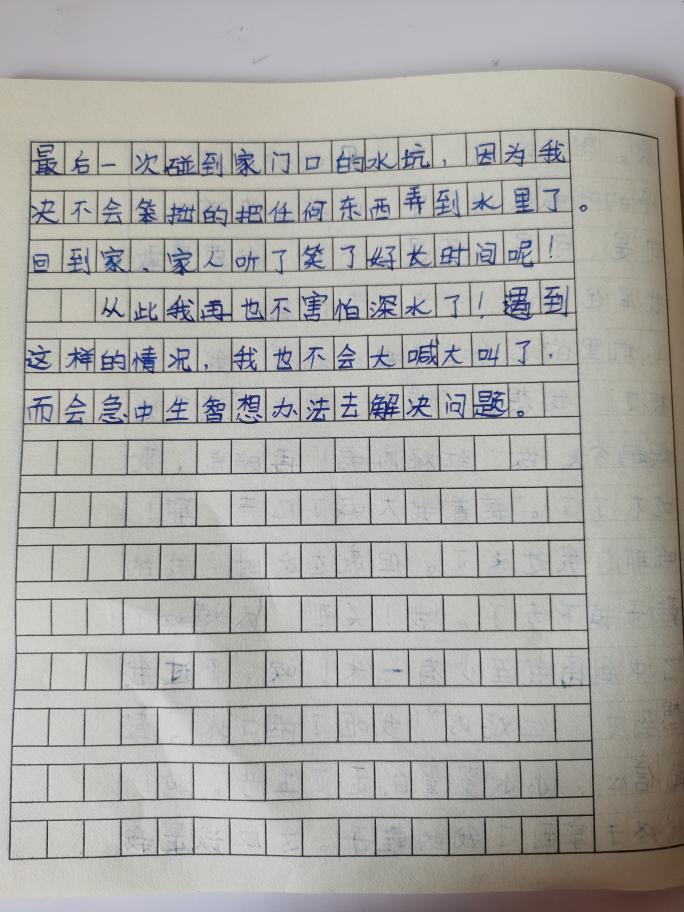 最后一次碰到家门口的水坑，因为我
决不会笨拙的把任何东西弄到水里了。
回到家、家人听了笑了好长时间呢！
从此我再也不害怕深水了！遇到
这样的情况，我也不会大喊大叫了，
而会急中生智想办法去解决问题。